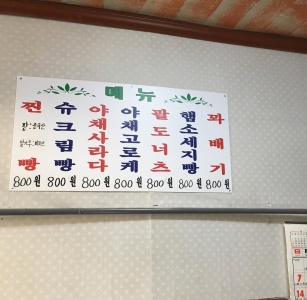 메뉴
찐빵
800원
슈크림빵
800원
야채사라다
800원
야채고로케
800원
팥도너츠
800원
햄소세지빵
800원
꽈배기
800원
7
14